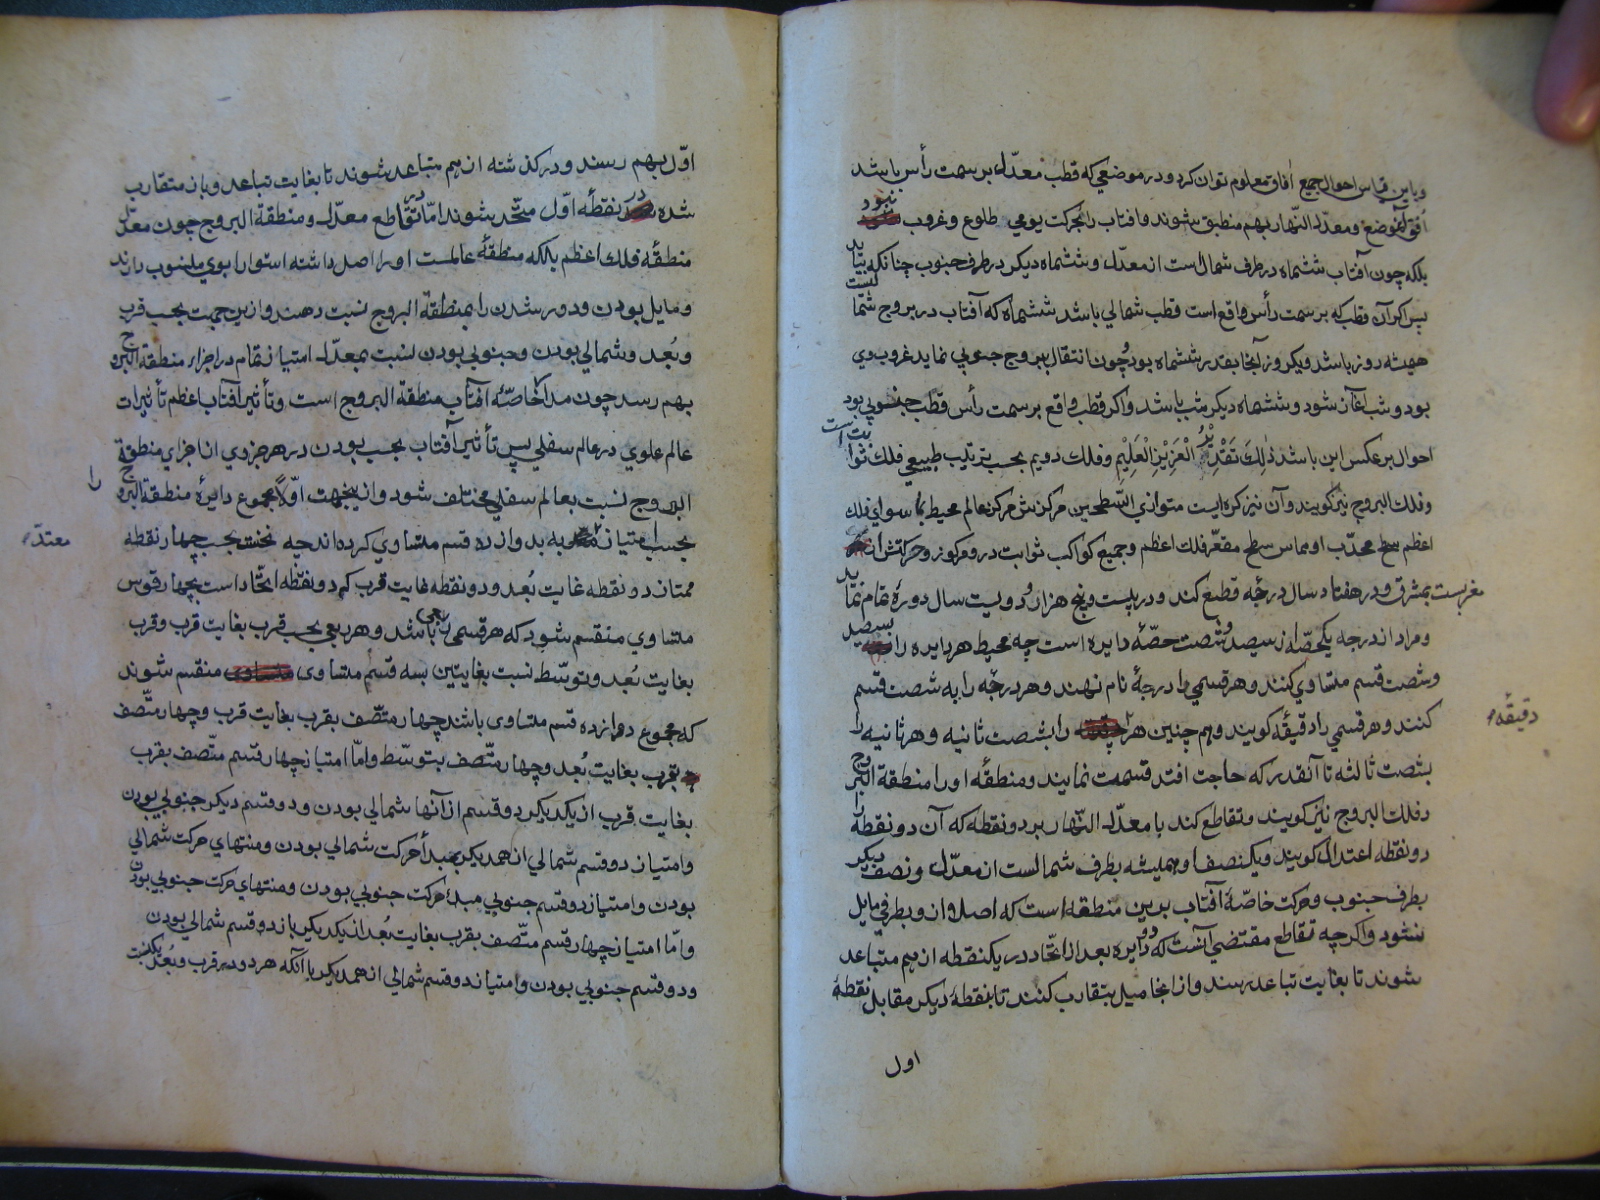 و باین قیاس احوال جمیع آفاق معلوم توان کرد و در موضعی که قطب معدّل بر سمت رأس باشد
اُفق آنموضع و معدل النّهار بهم منطبق شوند و افتاب را بحرکت یومی طلوع و غروب نبود
بلکه چون آفتاب ششماه در طرف شمال است از معدّل و ششماه دیکر در طرف جنوب چنانکه بیاید
پس اکر آن قطب که بر سمت رأس واقع است قطب شمالی باشد ششماه که آفتاب در بروج شمالیست
همیشه روز باشد و یکروز آنجا بقدر ششماه بود و چون انتقال ببروج جنوبی نماید غروب وی
بود و شب آغاز شود و ششماه دیکر شب باشد و اکر قطب واقع بر سمت رأس قطب جنوبی بود
احوال بر عکس این باشد ذٰلِكَ تَقْدِیْرُ الْعَزِیْزِ الْعَلِیْمِ و فلك دویم بحسب ترتیب طبیعی فلك ثوابت است
و فلك البروج نیز کویند و آن نیز کره ایست متوازی السّطحین مرکزش مرکز عالم محیط بما سوای فلك
اعظم سطح محدّب او مماس سطح مقعّر فلك اعظم و جمیع کواکب ثوابت در و مرکوز و حرکتش از
مغربست بمشرق و در هفتاد سال درجهٔ قطع کند و در بیست و پنج هزار و دویست سال دوره تمام نماید
و مراد از درجه یکحصّه از سیصد و شصت حصّهٔ دایره است چه محیط هر دایره را بسیصد
و شصت قسم متساوی کنند و هر قسمی را درجهٔ نام نهند و هر درجه را به شصت قسم
کنند و هر قسمی را دقیقهٔ کویند و هم چنین هر دقیقه را بشصت ثانیه و هر ثانیه را
دقیقه
بشصت ثالثه تا آنقدر که حاجت افتد قسمت نمایند و منطقهٔ او را منطقة البروج
و فلك البروج نیز کویند و تقاطع کند با معدّل النّهار بر دو نقطه که آن دو نقطه را
دو نقطه اعتدال کویند و یکنصف او همیشه بطرف شمالست از معدّل و نصف دیکر
بطرف جنوب و حرکت خاصّهٔ آفتاب برین منطقه است که اصلا از و بطرفی مایل
نشود و اکر چه تقاطع مقتضی آنست که دو دایره بعد از اتّحاد در یکنقطه از هم متباعد
شوند تا بغایت تباعد رسند و از انجا میل بتقارب کنند تا بنقطهٔ دیکر مقابل نقطهٔ
اول
اوّل بهم رسند و در کذشته از هم متباعد شوند تا بغایت تباعد و باز متقارب
شده در نقطهٔ اوّل متّحد شوند امّا در تقاطع معدّل و منطقة البروج چون معدّل
منطقهٔ فلك اعظم بلکه منطقهٔ عالمست او را اصل داشته استوا را بوی منسوب دارند
و مایل بودن و دور شدن را بمنطقة البروج نسبت دهند و ازین جهت بحسب قرب
و بُعد و شمالی بودن و جنوبی بودن نسبت بمعدّل امتیاز تمام در اجزاء منطقة البروج
بهم رسد چون مدار خاصّهٔ آفتاب منطقة البروج است و تأثیر آفتاب اعظم تأثیرات
عالم علوی در عالم سفلی پس تأثیر آفتاب بحسب بودن در هر جزوی از اجزای منطقة
البروج نسبت بعالم سفلی مختلف شود و ازینجهت اوّلا مجموع دایرهٔ منطقة البروج
را
بحسب امتیاز به دوازده قسم متساوی کرده اند چه نخست بحسب چهار نقطه
معتدّه
ممتاز دو نقطه غایت بُعد و دو نقطه غایت قرب که دو نقطه اتّحاد است بچهار قوس
متساوی منقسم شود که هر قسمی ربعی باشد و هر ربعی بحسب قرب بغایت قرب و قرب
بغایت بُعد و توسّط نسبت بغایتین بسه قسم متساوی منقسم شوند
که مجموع دوازده قسم متساوی باشد چهار متّصف بقرب بغایت قرب و چهار متّصف
بقرب بغایت بُعد و چهار متّصف بتوسّط و امّا امتیاز چهار قسم متّصف بقرب
بغایت قرب از یکدیکر دو قسم از آنها شمالی بودن و دو قسم دیکر جنوبی بودن
و امتیاز دو قسم شمالی از همدیکر بمبدأ حرکت شمالی بودن و منتهای حرکت شمالی
بودن و امتیاز دو قسم جنوبی مبدأ حرکت جنوبی بودن و منتهای حرکت جنوبی بودن
و امّا امتیاز چهار قسم متّصف بقرب بغایت بُعد از یکدیکر باز دو قسم شمالی بودن
و دو قسم جنوبی بودن و امتیاز دو قسم شمالی از همدیکر با آنکه هر دو در قرب و بُعد